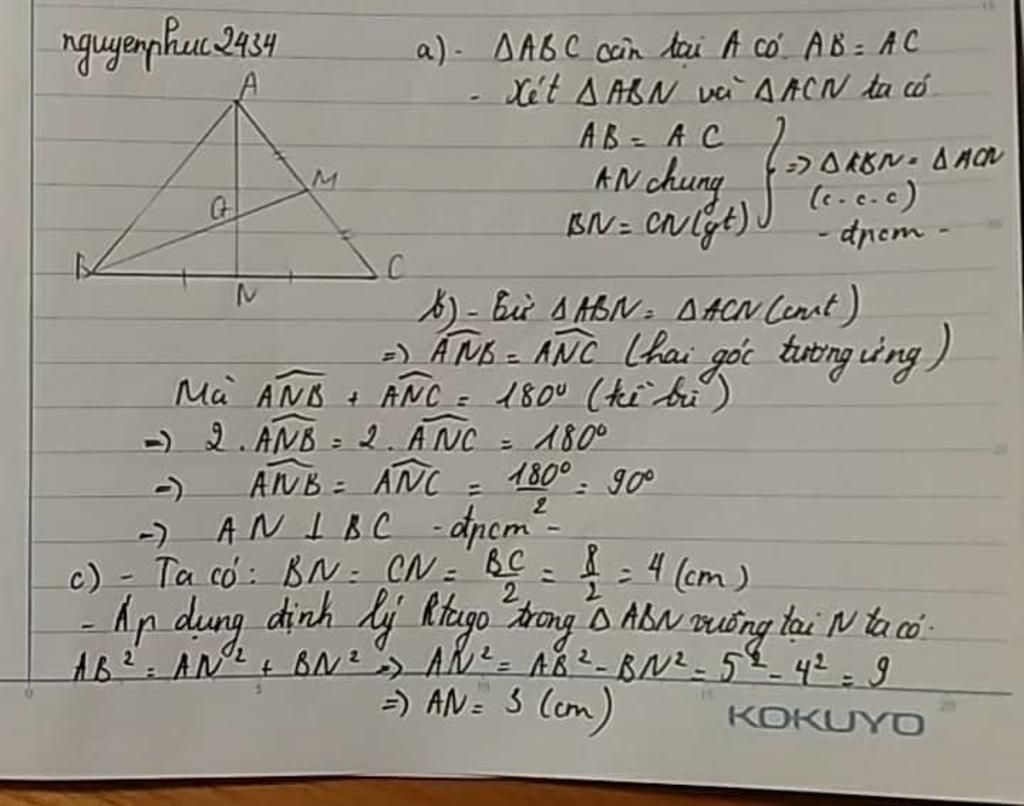 nguyenphuc2434
a) - ΔABC cân tại A có AB = AC
- Xét ΔABN và ΔACN ta có
AB = AC
AN chung
BN = CN (gt)
=> ΔABN = ΔACN
(c-c-c)
- đpcm -
A
M
G
B
C
N
b) - Từ ΔABN = ΔACN (cmt)
=> ANB = ANC (hai góc tương ứng)
Mà ANB + ANC = 180° (kề bù)
=> 2.ANB = 2.ANC = 180°
=> ANB = ANC = 180°/2 = 90°
=> AN ⊥ BC - đpcm -
c) - Ta có: BN = CN = BC/2 = 8/2 = 4 (cm)
- Áp dụng định lý Pitago trong ΔABN vuông tại N ta có.
AB² = AN² + BN² => AN² = AB² - BN² = 5² - 4² = 9
=> AN = 3 (cm)
0 5 10 15 20
KOKUYO